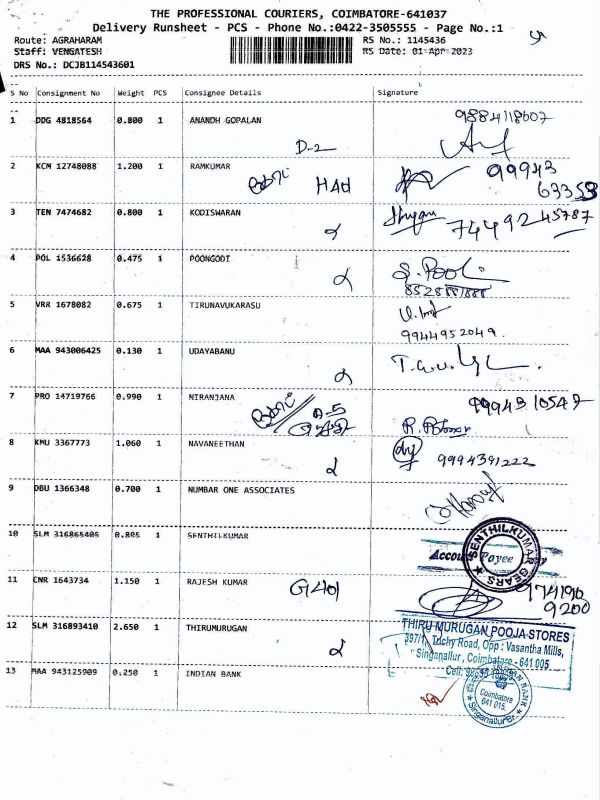 THE PROFESSIONAL COURIERS, COIMBATORE-641037
Delivery Runsheet - PCS - Phone No.:0422-3505555 - Page No.:1
Route: AGRAHARAM RS No.: 1145436
Staff: VENGATESH RS Date: 01-Apr-2023
DRS No.: DCJB114543601
S No Consignment No Weight PCS Consignee Details Signature
1 DDG 4818564 0.800 1 ANANDH GOPALAN 9884118607
D-2
2 KCM 12748088 1.200 1 RAMKUMAR 99943
H4d 63353
3 TEN 7474682 0.800 1 KODISWARAN 7449245787
4 POL 1536628 0.475 1 POONGODI
5 VRR 1678082 0.675 1 TIRUNAVUKARASU
9944952049.
6 MAA 943006425 0.130 1 UDAYABANU
7 PRO 14719766 0.990 1 NIRANJANA 99943 10547
8 KMU 3367773 1.060 1 NAVANEETHAN 9994391222
9 DBU 1366348 0.700 1 NUMBAR ONE ASSOCIATES
10 SLM 316865405 0.805 1 SENTHILKUMAR SENTHILKUMAR GEARS
Account Payee
11 CNR 1643734 1.150 1 RAJESH KUMAR G401 974190
9200
12 SLM 316893410 2.650 1 THIRUMURUGAN THIRU MURUGAN POOJA STORES
397/1, Trichy Road, Opp : Vasantha Mills,
Singanallur, Coimbatore - 641 005
Cell:
13 MAA 943125909 0.250 1 INDIAN BANK INDIAN BANK
Coimbatore
641 015.
Singanallur Br.